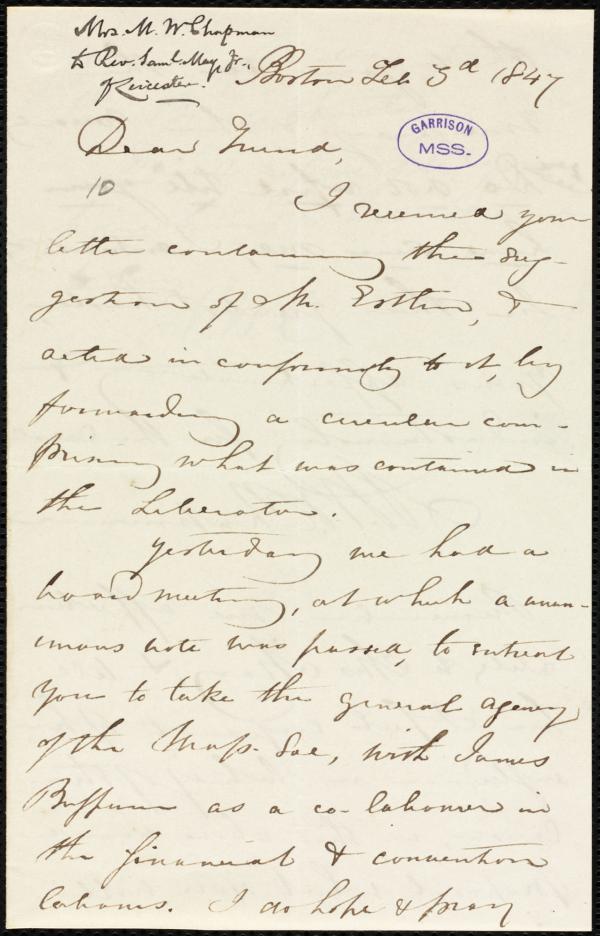 Mrs. M. W. Chapman
to Rev. Saml. May, Jr.,
of Leicester.
Boston Feb 3d 1847
GARRISON
MSS.
Dear Friend,
10
I received your
letter containing the sug-
gestion of Mr. Estlin, &
acted in conformity to it, by
forwarding a circular com-
prising what was contained in
the Liberator.
Yesterday we had a
board meeting, at which a unan-
imous vote was passed, to entreat
you to take the general agency
of the Mass. Soc, with James
Buffum as a co-labourer in
the financial & convention
labours. I do hope & pray